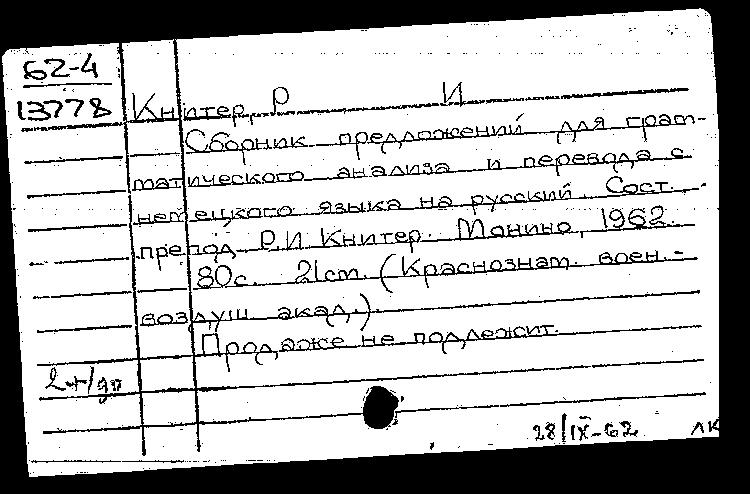 62-4
13778
Книтер, Р И
Сборник предложений для грам-
матического анализа и перевода с
немецкого языка на русский. Сост.
препод. Р.И. Книтер. Монино, 1962.
80с. 21см. (Краснознам. воен.-
воздуш. акад.).
Продаже не подлежит.
28/IX-62 ЛК